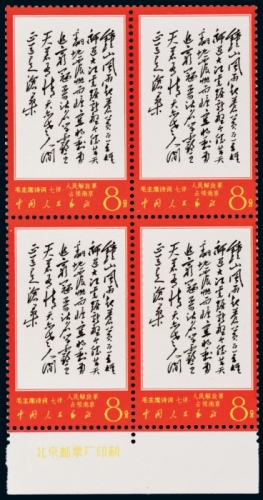 鍾山風雨起蒼黃百萬雄
師過大江虎踞龍盤今勝昔天
翻地覆慨而慷宜將剩勇
追窮寇不可沽名學霸王
天若有情天亦老人間
正道是滄桑
毛主席诗词 七律 人民解放军
占领南京
中国人民邮政 8分
鍾山風雨起蒼黃百萬雄
師過大江虎踞龍盤今勝昔天
翻地覆慨而慷宜將剩勇
追窮寇不可沽名學霸王
天若有情天亦老人間
正道是滄桑
毛主席诗词 七律 人民解放军
占领南京
中国人民邮政 8分
鍾山風雨起蒼黃百萬雄
師過大江虎踞龍盤今勝昔天
翻地覆慨而慷宜將剩勇
追窮寇不可沽名學霸王
天若有情天亦老人間
正道是滄桑
毛主席诗词 七律 人民解放军
占领南京
中国人民邮政 8分
鍾山風雨起蒼黃百萬雄
師過大江虎踞龍盤今勝昔天
翻地覆慨而慷宜將剩勇
追窮寇不可沽名學霸王
天若有情天亦老人間
正道是滄桑
毛主席诗词 七律 人民解放军
占领南京
中国人民邮政 8分
北京邮票厂印制